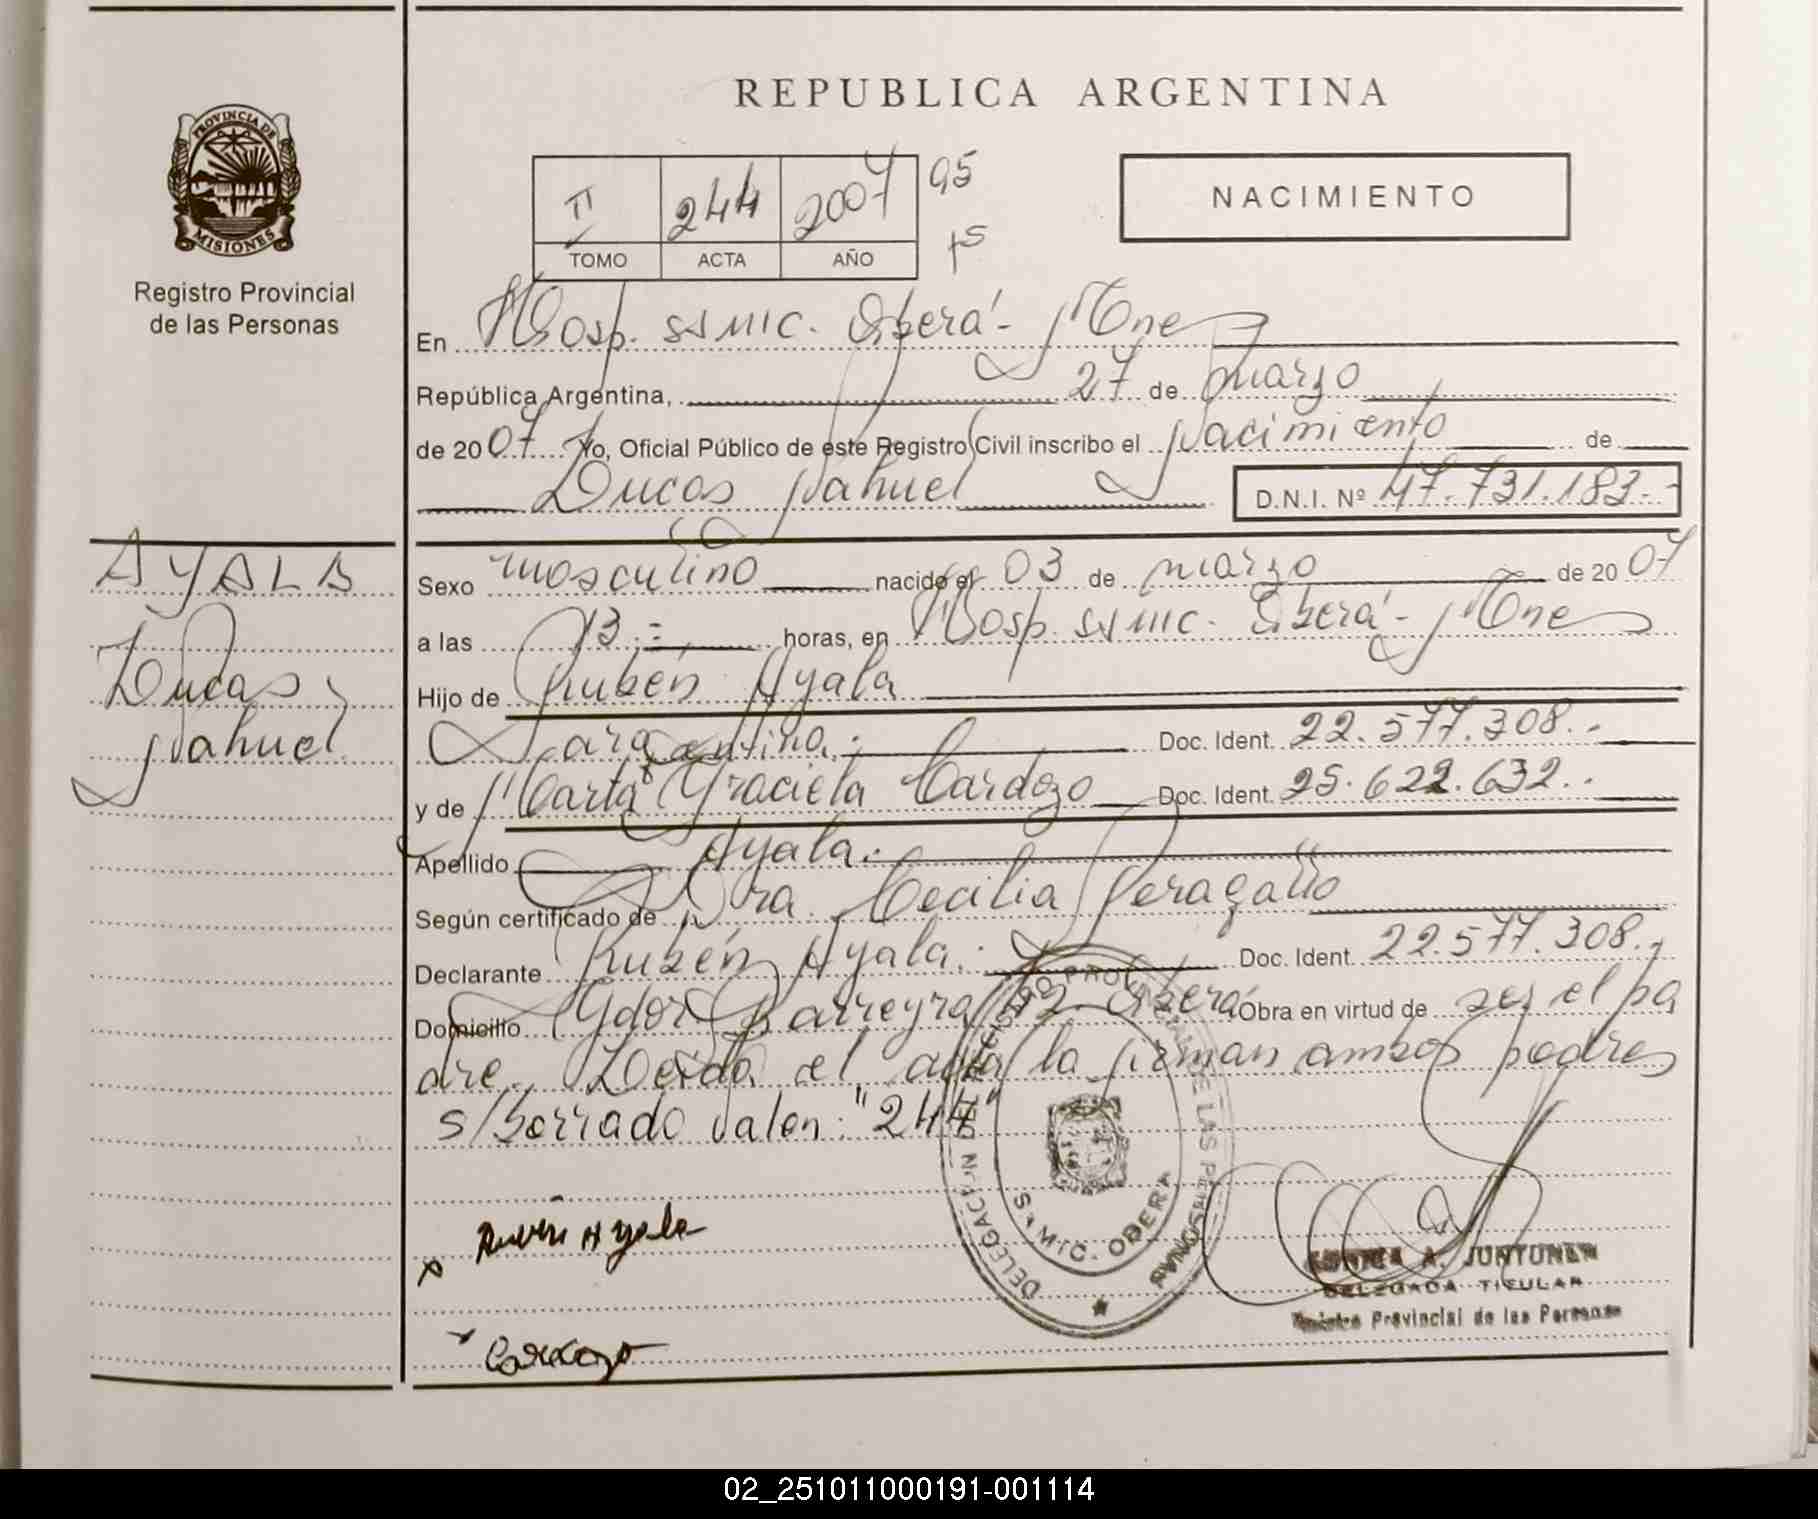 REPUBLICA ARGENTINA
PROVINCIA DE
MISIONES
Registro Provincial
de las Personas
II 244 2007 95
TOMO ACTA AÑO 15
NACIMIENTO
En Hosp. SSMIC. Oberá - Mnes
República Argentina, 27 de marzo
de 2007 Yo, Oficial Público de este Registro Civil inscribo el Nacimiento de
Lucas Nahuel D.N.I. Nº 47.731.183.-
AYALA
Lucas
Nahuel
Sexo masculino nacido el 03 de marzo de 2007
a las 13.- horas, en Hosp. SSMIC. Oberá - Mnes
Hijo de Rubén Ayala
argentino.- Doc. Ident. 22.577.308.-
y de Marta Graciela Cardozo Doc. Ident. 25.622.632.-
Apellido Ayala.-
Según certificado de Dra. Cecilia Peragallo
Declarante Rubén Ayala.- Doc. Ident. 22.577.308.-
Domicilio Barreyra Oberá Obra en virtud de ser el pa
dre. Leída el acta la firman ambos padres
s/borrado valen: "244"
DELEGACION DEL REGISTRO PROVINCIAL DE LAS PERSONAS
S.MIC. OBERA
x Rubén Ayala
Cardozo
A. JUNTUNEN
DELEGADA TITULAR
Registro Provincial de las Personas
02_251011000191-001114